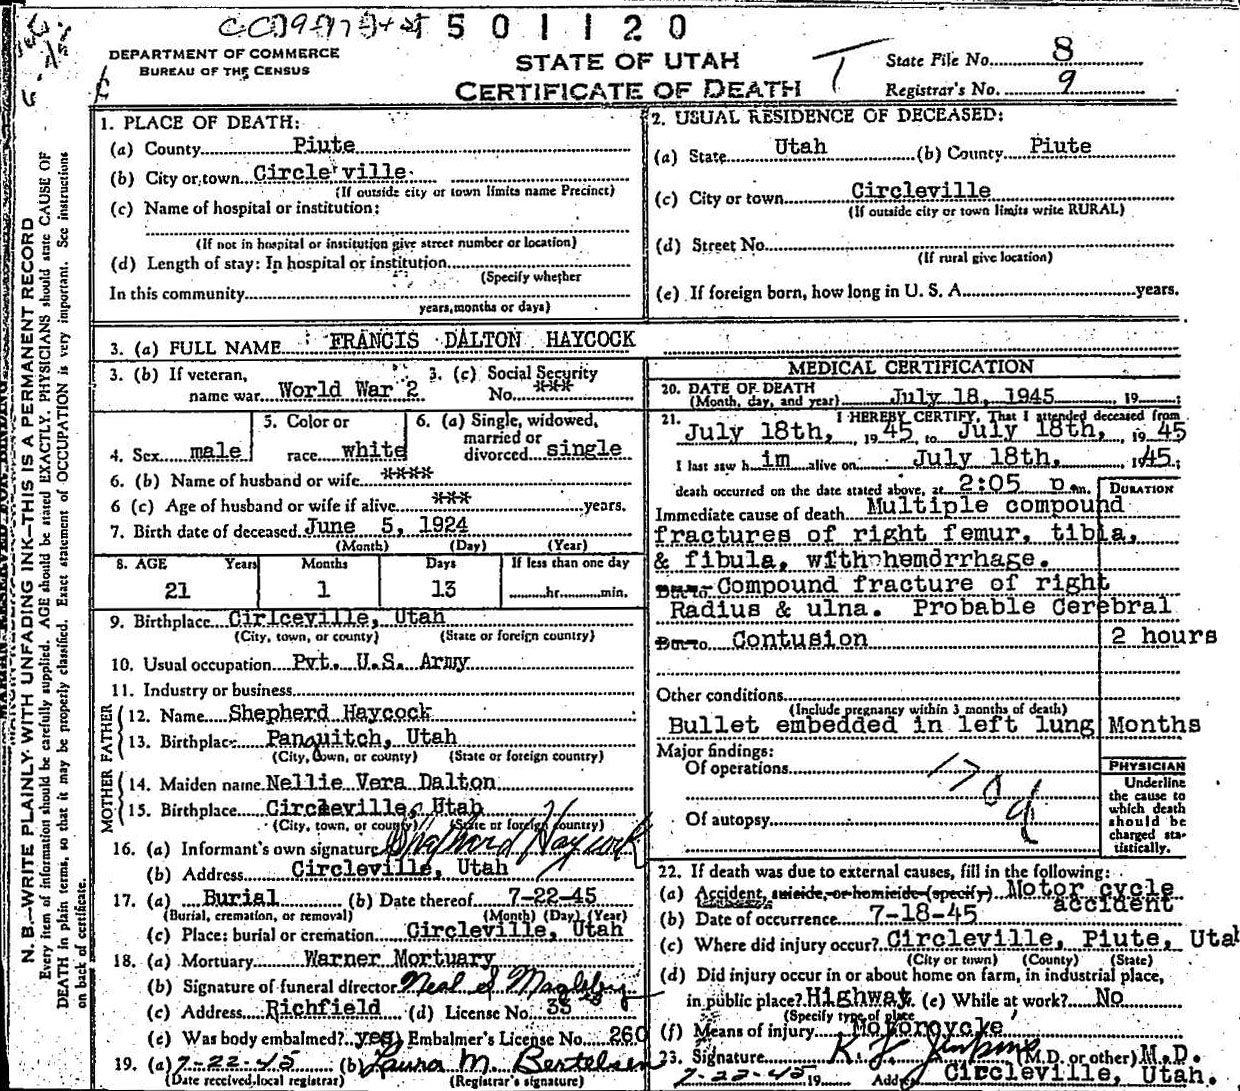 501120
DEPARTMENT OF COMMERCE
BUREAU OF THE CENSUS
STATE OF UTAH
CERTIFICATE OF DEATH
T
State File No. 8
Registrar's No. 9
N. B.—WRITE PLAINLY, WITH UNFADING INK—THIS IS A PERMANENT RECORD
Every item of information should be carefully supplied. AGE should be stated EXACTLY. PHYSICIANS should state CAUSE OF
DEATH in plain terms, so that it may be properly classified. Exact statement of OCCUPATION is very important. See instructions
on back of certificate.
1. PLACE OF DEATH:
(a) County Piute
(b) City or town Circleville
(If outside city or town limits name Precinct)
(c) Name of hospital or institution:
(If not in hospital or institution give street number or location)
(d) Length of stay: In hospital or institution
(Specify whether
In this community
years, months or days)
2. USUAL RESIDENCE OF DECEASED:
(a) State Utah (b) County Piute
(c) City or town Circleville
(If outside city or town limits write RURAL)
(d) Street No.
(If rural give location)
(e) If foreign born, how long in U. S. A. years.
3. (a) FULL NAME FRANCIS DALTON HAYCOCK
3. (b) If veteran, name war World War 2
3. (c) Social Security No. ***
4. Sex male
5. Color or race white
6. (a) Single, widowed, married or divorced single
6. (b) Name of husband or wife ****
6 (c) Age of husband or wife if alive *** years.
7. Birth date of deceased June 5, 1924
(Month) (Day) (Year)
8. AGE Years Months Days If less than one day
21 1 13 hr. min.
9. Birthplace Cirlceville, Utah
(City, town, or county) (State or foreign country)
10. Usual occupation Pvt. U.S. Army
11. Industry or business
FATHER
12. Name Shepherd Haycock
13. Birthplace Panquitch, Utah
(City, town, or county) (State or foreign country)
MOTHER
14. Maiden name Nellie Vera Dalton
15. Birthplace Circleville, Utah
(City, town, or county) (State or foreign country)
16. (a) Informant's own signature Haycock
(b) Address Circleville, Utah
17. (a) Burial (b) Date thereof 7-22-45
(Burial, cremation, or removal) (Month) (Day) (Year)
(c) Place: burial or cremation Circleville, Utah
18. (a) Mortuary Warner Mortuary
(b) Signature of funeral director Neal S Magleby
(c) Address Richfield (d) License No.
(e) Was body embalmed? yes, Embalmer's License No. 260
19. (a) 7-22-45 (b) Laura M. Bertelsen
(Date received, local registrar) (Registrar's signature)
MEDICAL CERTIFICATION
20. DATE OF DEATH
(Month, day, and year) July 18, 1945 19 ;
21. I HEREBY CERTIFY, That I attended deceased from
July 18th, 1945 to July 18th, 1945
I last saw him alive on July 18th, 1945;
death occurred on the date stated above, at 2:05 p.m. DURATION
Immediate cause of death Multiple compound
fractures of right femur, tibia,
& fibula, with hemorrhage.
Due to Compound fracture of right
Radius & ulna. Probable Cerebral
Due to Contusion 2 hours
Other conditions
(Include pregnancy within 3 months of death)
Bullet embedded in left lung Months
Major findings:
Of operations
Of autopsy
170d
PHYSICIAN
Underline
the cause to
which death
should be
charged sta-
tistically.
22. If death was due to external causes, fill in the following:
(a) Accident, suicide, or homicide (specify) Motor cycle
accident
(b) Date of occurrence 7-18-45
(c) Where did injury occur? Circleville, Piute, Utah
(City or town) (County) (State)
(d) Did injury occur in or about home on farm, in industrial place,
in public place? Highway (e) While at work? No
(Specify type of place
(f) Means of injury Motorcycle
23. Signature (M.D. or other) M.D.
7-22-45 19 Address Circleville, Utah.